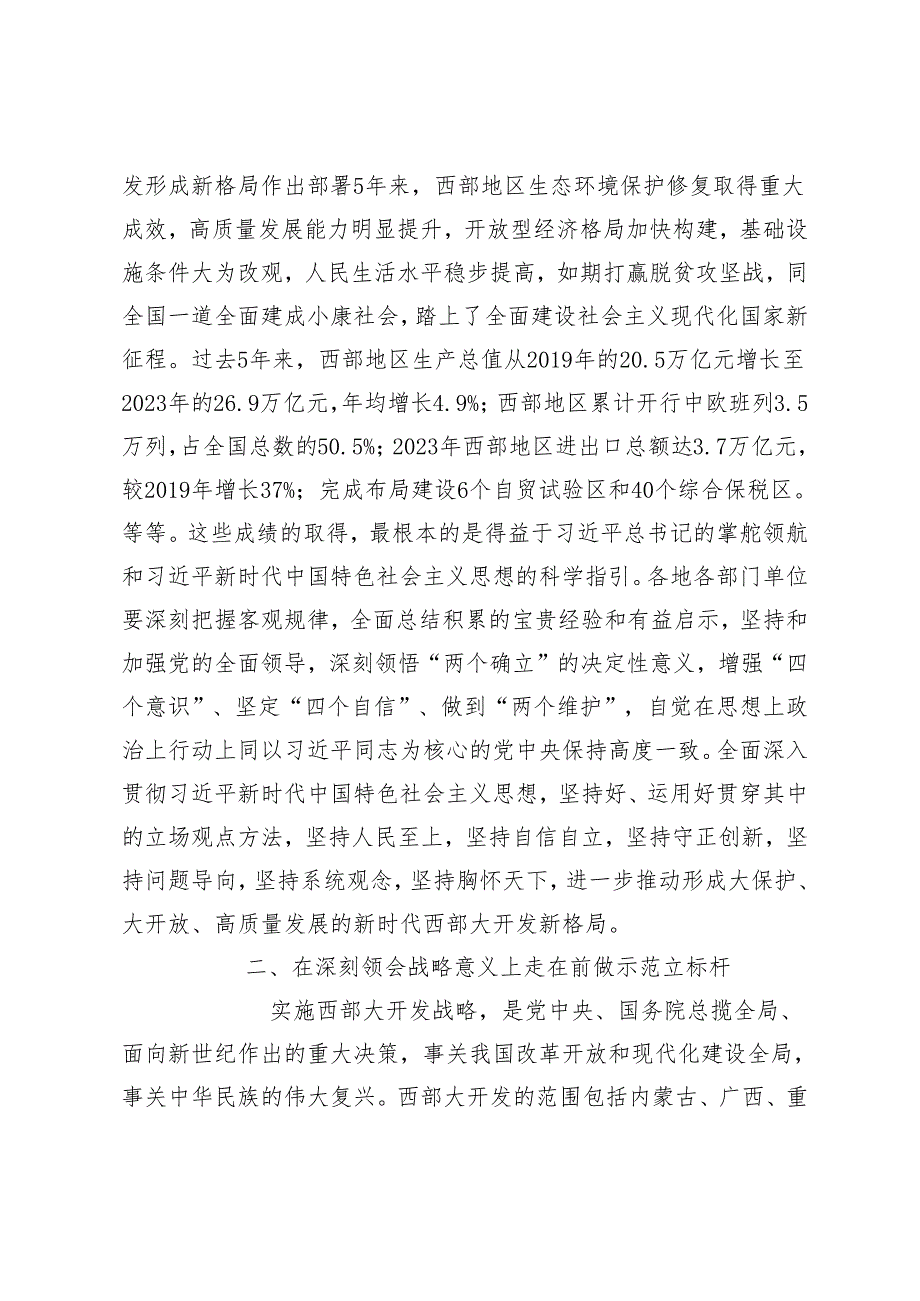 发形成新格局作出部署5年来，西部地区生态环境保护修复取得重大
成效，高质量发展能力明显提升，开放型经济格局加快构建，基础设
施条件大为改观，人民生活水平稳步提高，如期打赢脱贫攻坚战，同
全国一道全面建成小康社会，踏上了全面建设社会主义现代化国家新
征程。过去5年来，西部地区生产总值从2019年的20.5万亿元增长至
2023年的26.9万亿元，年均增长4.9%；西部地区累计开行中欧班列3.5
万列，占全国总数的50.5%；2023年西部地区进出口总额达3.7万亿元，
较2019年增长37%；完成布局建设6个自贸试验区和40个综合保税区。
等等。这些成绩的取得，最根本的是得益于习近平总书记的掌舵领航
和习近平新时代中国特色社会主义思想的科学指引。各地各部门单位
要深刻把握客观规律，全面总结积累的宝贵经验和有益启示，坚持和
加强党的全面领导，深刻领悟“两个确立”的决定性意义，增强“四
个意识”、坚定“四个自信”、做到“两个维护”，自觉在思想上政
治上行动上同以习近平同志为核心的党中央保持高度一致。全面深入
贯彻习近平新时代中国特色社会主义思想，坚持好、运用好贯穿其中
的立场观点方法，坚持人民至上，坚持自信自立，坚持守正创新，坚
持问题导向，坚持系统观念，坚持胸怀天下，进一步推动形成大保护、
大开放、高质量发展的新时代西部大开发新格局。
二、在深刻领会战略意义上走在前做示范立标杆
实施西部大开发战略，是党中央、国务院总揽全局、
面向新世纪作出的重大决策，事关我国改革开放和现代化建设全局，
事关中华民族的伟大复兴。西部大开发的范围包括内蒙古、广西、重